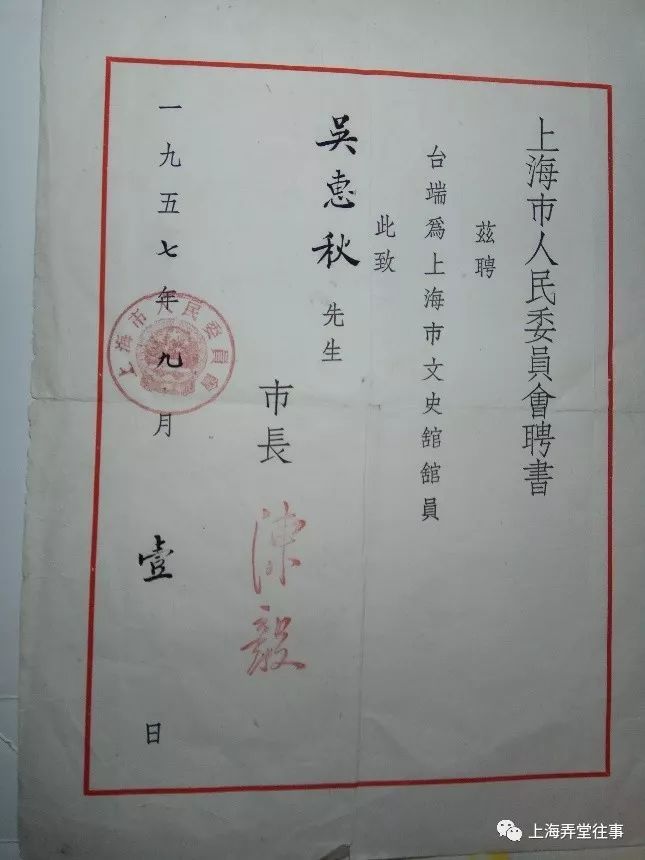 上海市人民委員會聘書
茲聘
台端爲上海市文史舘舘員
此致
吳惠秋先生
市長 陳毅
一九五七年九月壹日
上海市人民委員會
上海弄堂往事